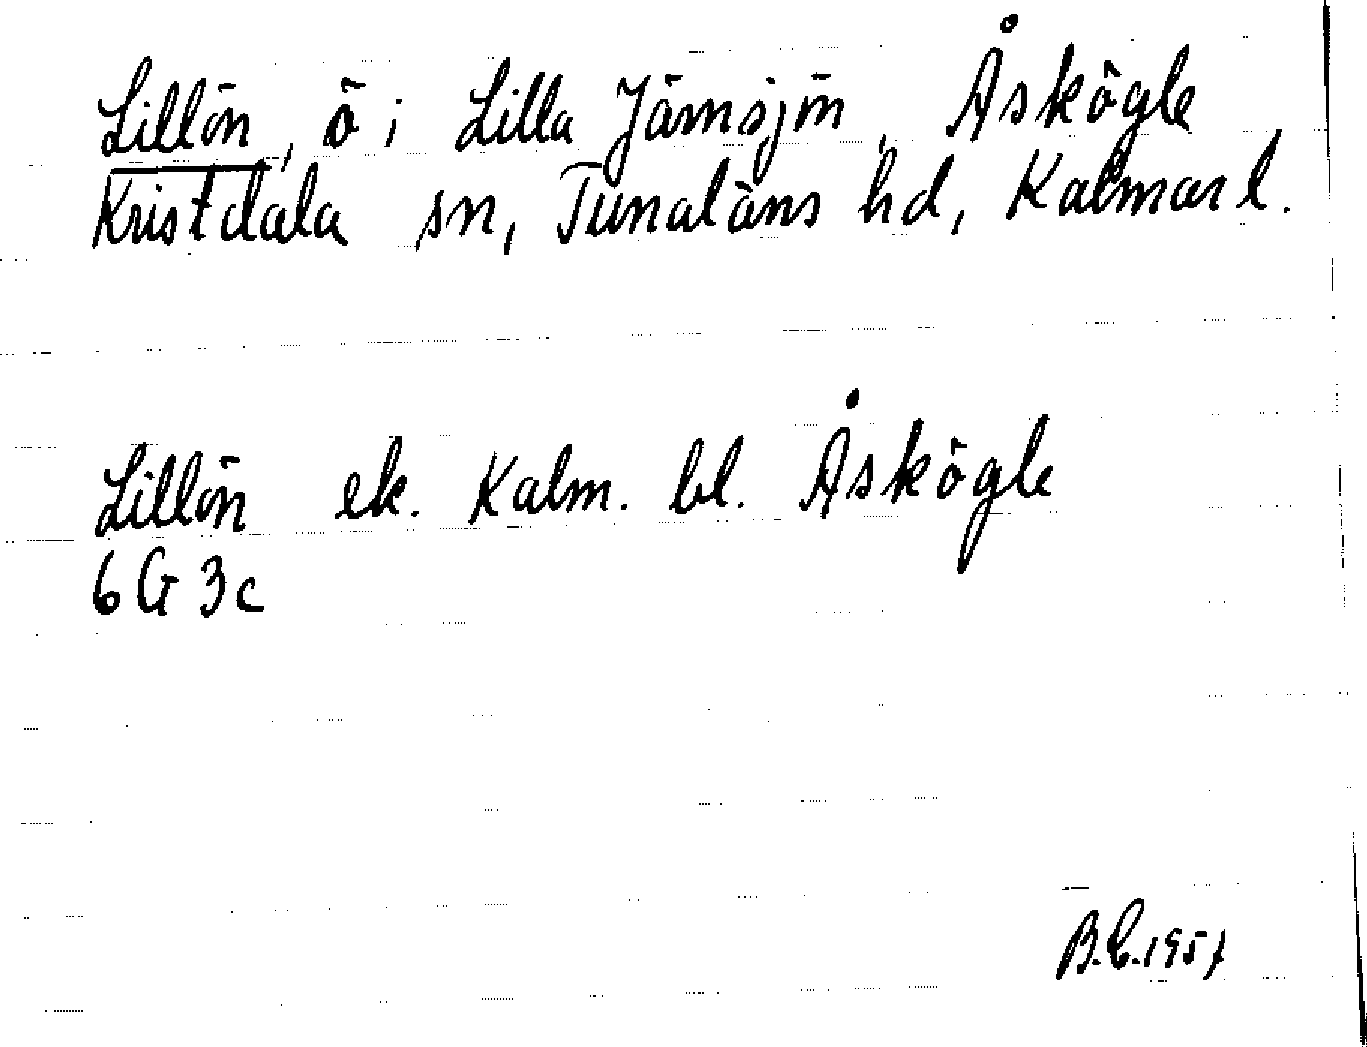 Lillön, ö i Lilla Jämsjön, Åskögle,
Kristdala sn, Tunaläns hd, Kalmar l.
Lillön ek. Kalm. bl. Åskögle
6 G 3c
B.C. 1957